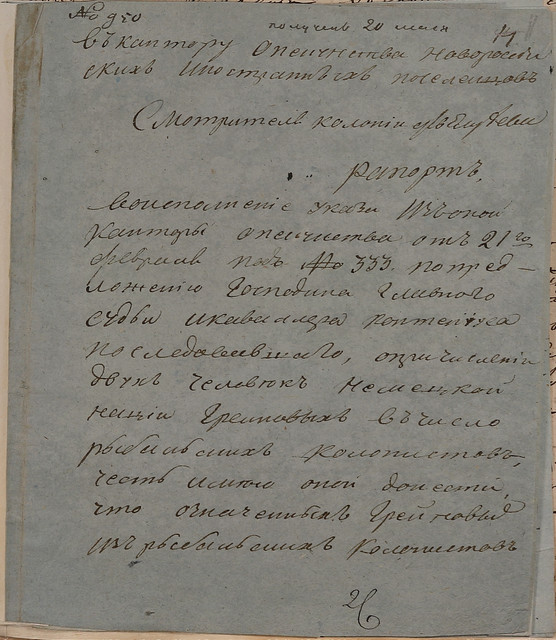 № 950
получен 20 маия
14
въ кантору опекунства новороссий
скихъ иностранныхъ поселенцовъ
Смотрителя колонии
рапортъ,
Воисполнение указа изъ оной
канторы опекунства отъ 21го
февраля подъ № 333. по пред–
ложению Господина Главного
судьи икавалера контениуса
последовавшаго, опричислении
двухъ человюкъ немецкой
нации Грейновыхъ в число
рыбальскихъ колонистовъ,
честь имею оной донести,
что означенныхъ Грейновых
изъ рыбальскихъ Колонистовъ